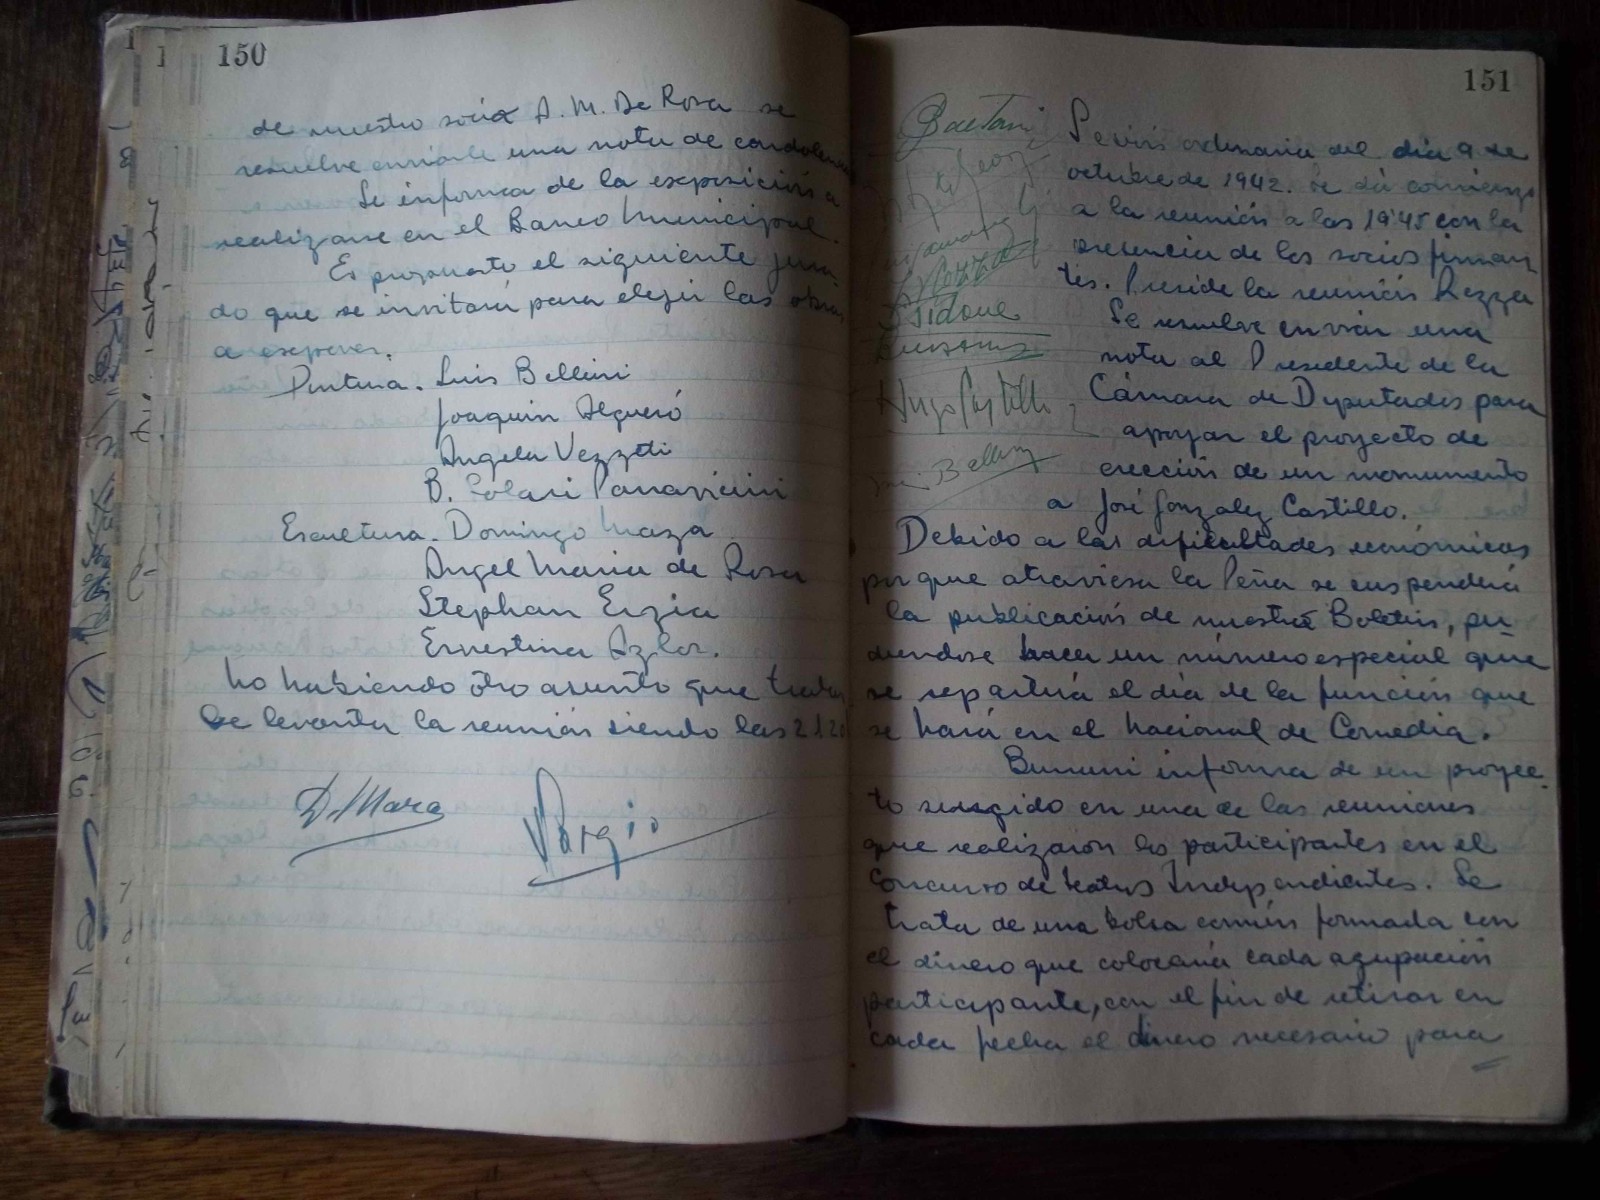 150
de nuestro socio A. M. De Rosa se
resuelve enviarle una nota de condolencia
Se informa de la exposición a
realizarse en el Banco Municipal.
Es propuesto el siguiente jura-
do que se invitará para elejir las obras
a exponer.
Pintura. Luis Bellini
Joaquin Algueró
Angela Vezzetti
B. Solari Parravicini
Escultura. Domingo Maza
Angel Maria de Rosa
Stephan Erzia
Ernestina Azlor.
No habiendo otro asunto que tratar
se levanta la reunión siendo las 21.20
D. Mara
151
Gaetani
Sidoue
Hugo Castillo
Bellini
Sesión ordinaria del dia 9 de
octubre de 1942. se dá comienzo
a la reunión a las 19'45 con la
presencia de los socios firman
tes. Preside la reunión Rezza
Se resuelve enviar una
nota al Presidente de la
Cámara de Diputados para
apoyar el proyecto de
erección de un monumento
a José Gonzalez Castillo.
Debido a las dificultades económicas
por que atraviesa la Peña se suspenderá
la publicación de nuestro Boletin, pu-
diendose hacer un número especial que
se repartirá el día de la función que
se hará en el Nacional de Comedia.
informa de un proyec-
to surgido en una de las reuniones
que realizaron los participantes en el
Concurso de teatros Independientes. Se
trata de una bolsa común formada con
el dinero que colocaría cada agrupación
participante, con el fin de retirar en
cada fecha el dinero necesario para